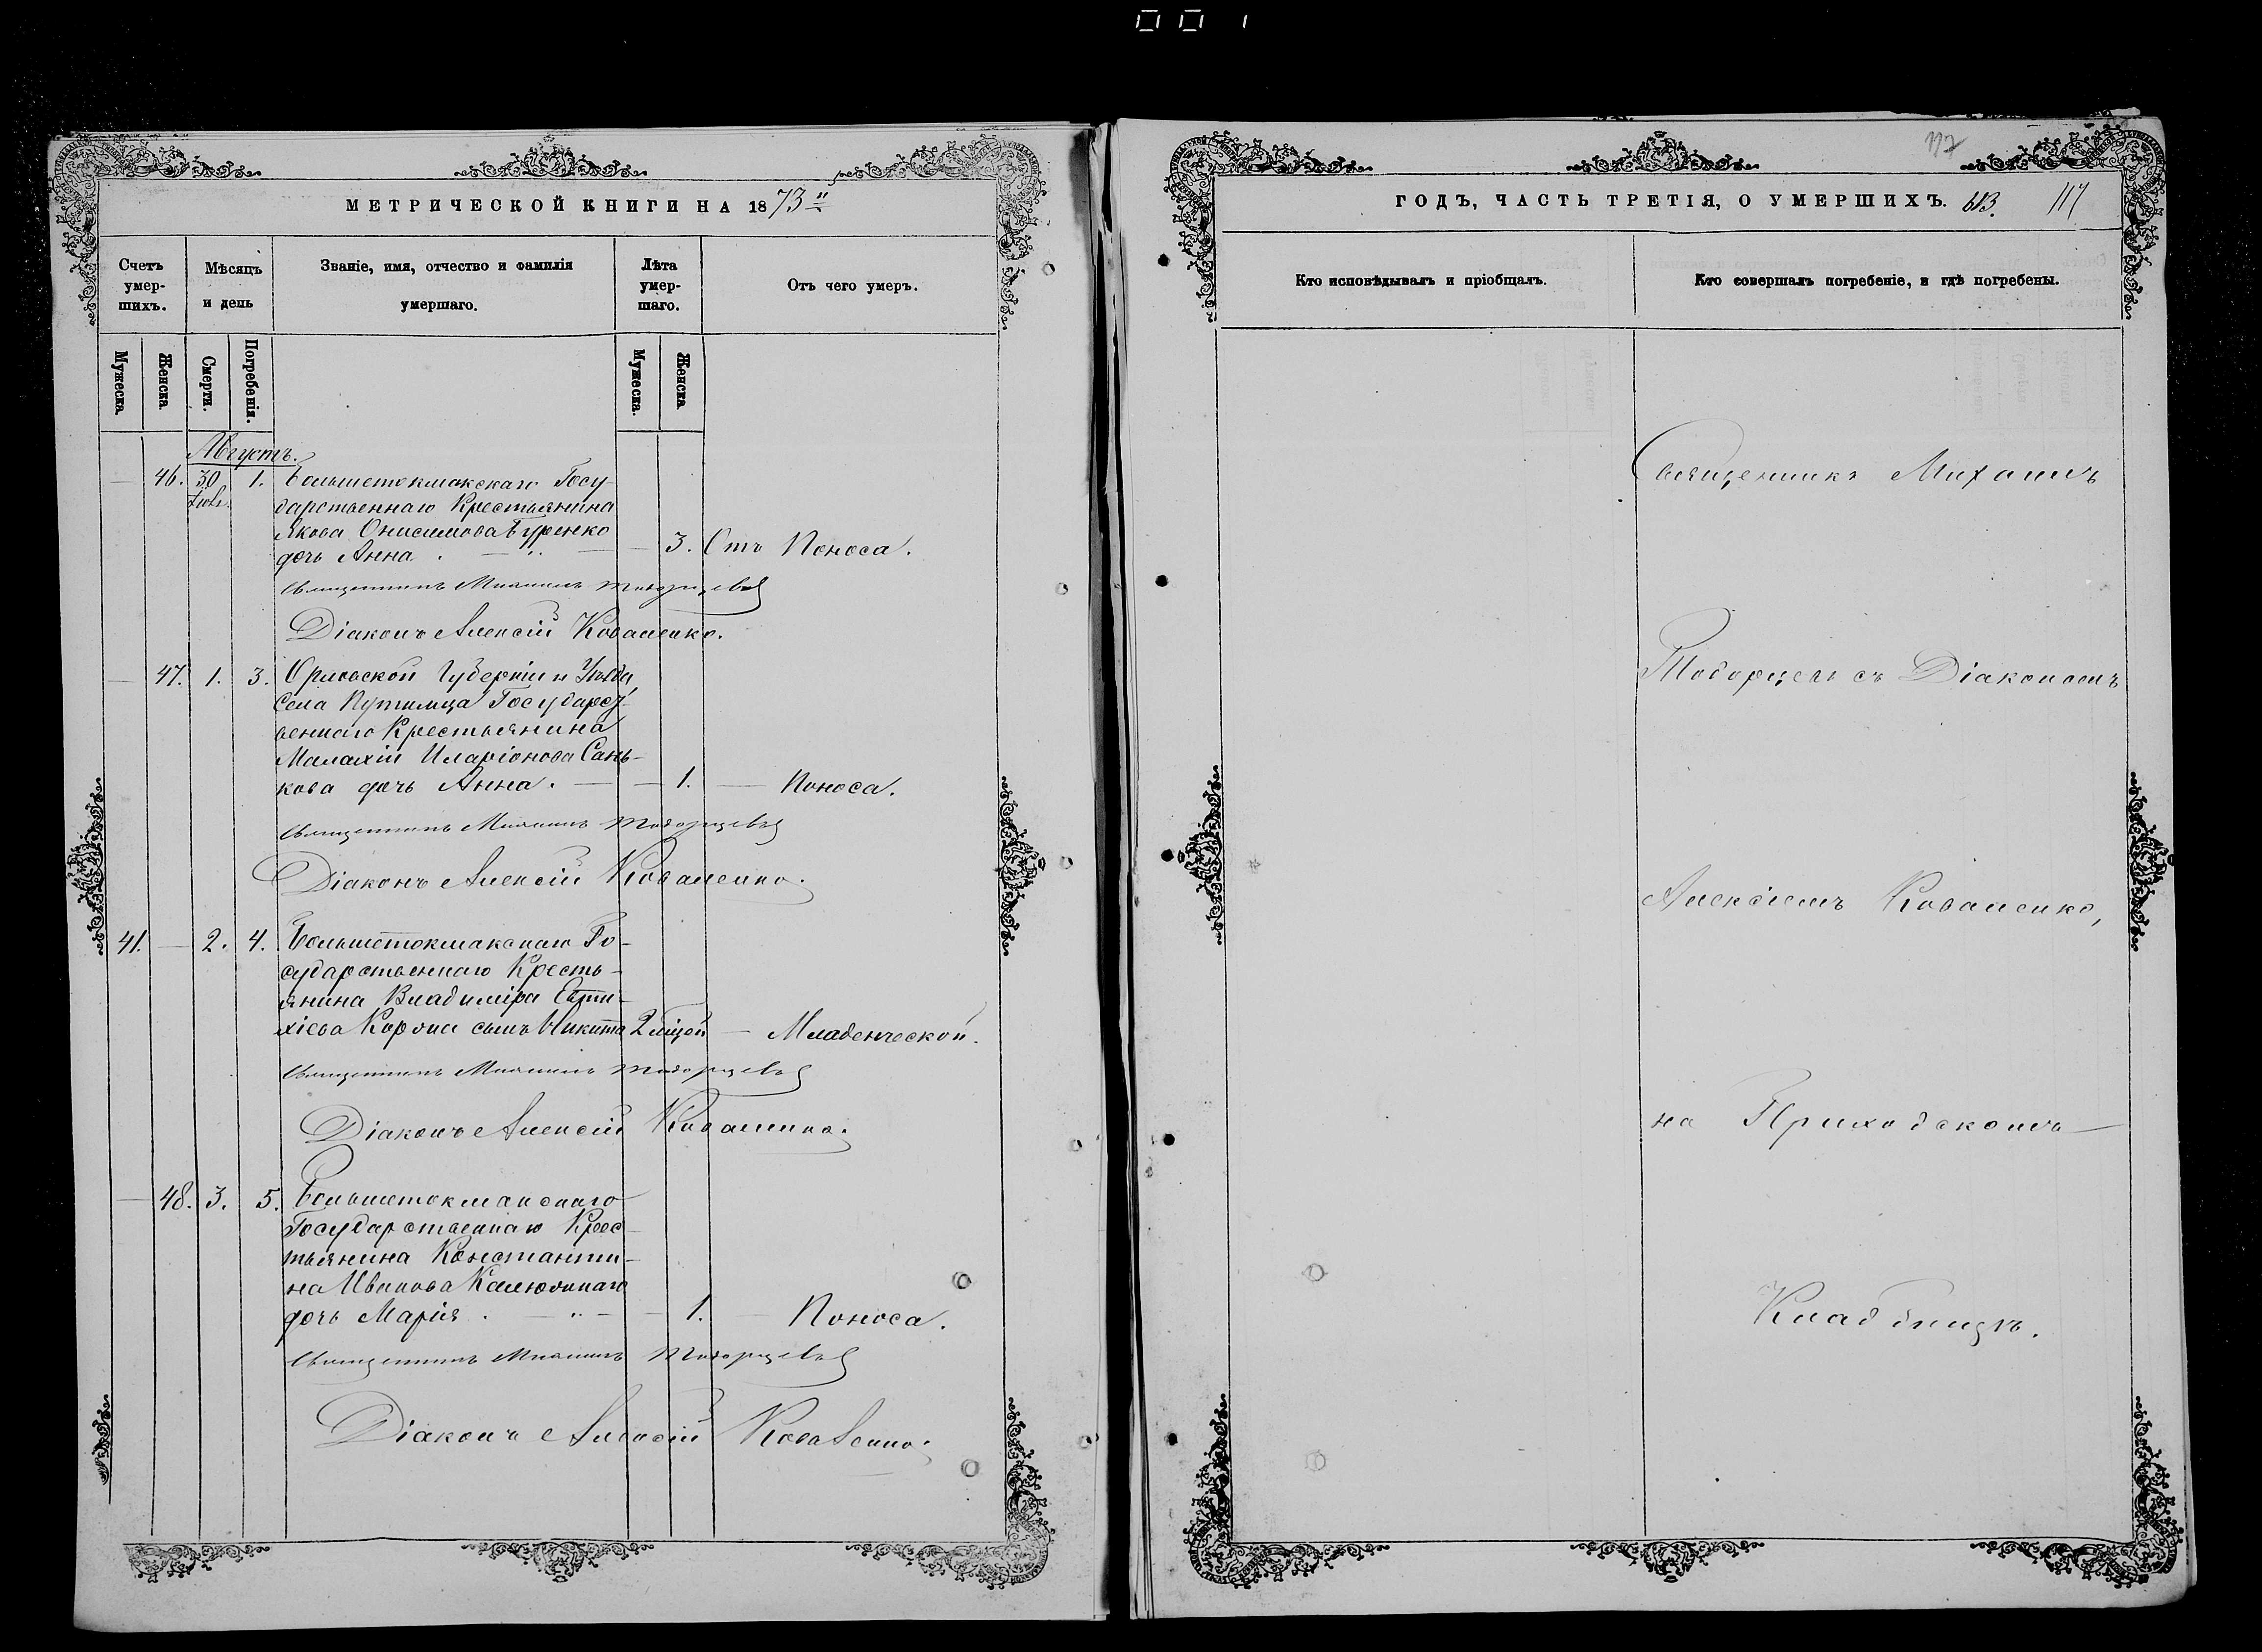 001
МЕТРИЧЕСКОЙ КНИГИ НА 1873
Счетъ умер-шихъ.
Мѣсяцъ и день
Званіе, имя, отчество и фамилія умершаго.
Лѣта умер-шаго.
Отъ чего умеръ.
Мужеска.
Женска
Смерти.
Погребенія.
Мужеска.
Женска
Августъ.
46. 30 Іюля. 1. Большетокмакскаго Госу-
дарственнаго Крестьянина
Якова Онисимова Буренко
дочь Анна. 3. Отъ Поноса.
Священникъ Михаилъ
Діаконъ Алексій Коваленко.
47. 1. 3. Орловской Губерніи и Уѣзда
Села Путимца Государст-
веннаго Крестьянина
Малахіи Иларіонова Сань-
кова дочь Анна. 1. Поноса.
Священникъ Михаилъ
Діаконъ Алексій Коваленко.
41. 2. 4. Большетокмакскаго Го-
сударственнаго Кресть-
янина Владиміра Евти-
хіева сынъ Никита 2 мѣсяц. Младенческой.
Священникъ Михаилъ
Діаконъ Алексій Коваленко.
48. 3. 5. Большетокмакскаго
Государственнаго Крес-
тьянина Константи-
на Иванова
дочь Марія. 1. Поноса.
Священникъ Михаилъ
Діаконъ Алексій Коваленко.
117
ГОДЪ, ЧАСТЬ ТРЕТІЯ, О УМЕРШИХЪ. 613. 117
Кто исповѣдывалъ и пріобщалъ.
Кто совершалъ погребеніе, и гдѣ погребены.
Священникъ Михаилъ
съ Діакономъ
Алексіемъ Коваленко,
на Приходскомъ
Кладбищѣ.